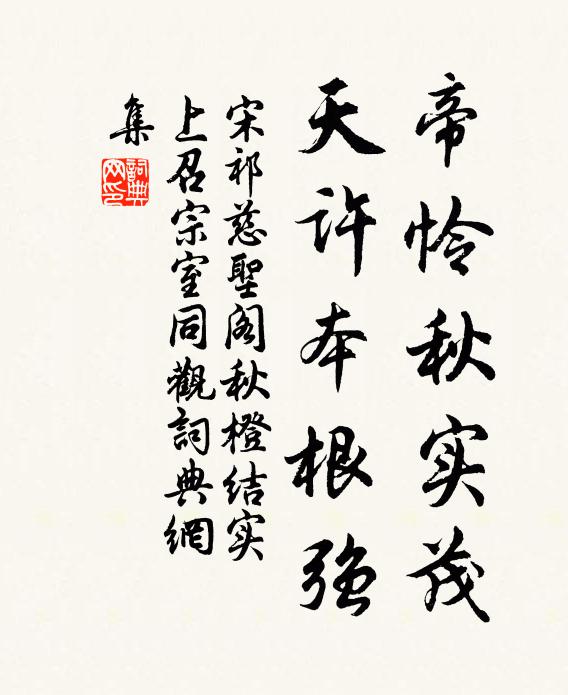 帝怜秋实茂
天许本根强
宋祁慈聖阁秋橙结实
上召宗室同觀詞典網
集
詞典网印